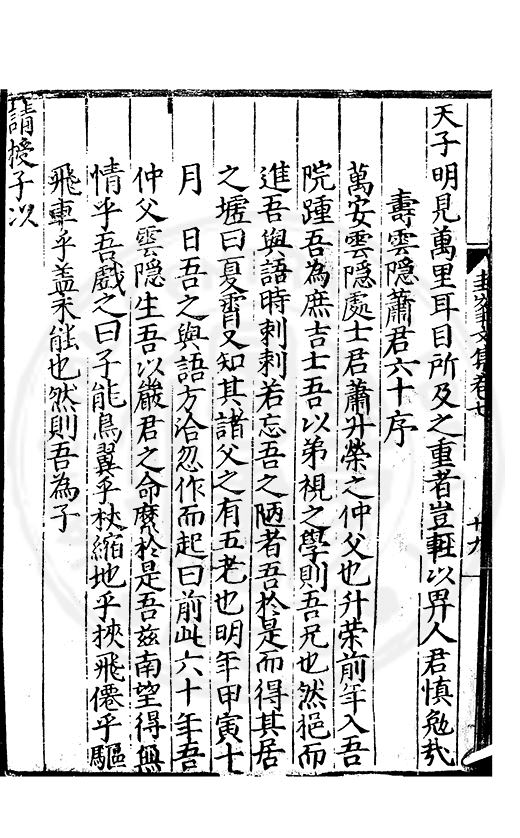 天子明見萬里耳目所及之重者豈輕以畀人君慎勉哉
壽雲隱蕭君六十序
萬安雲隱處士君蕭升榮之仲父也升榮前年入吾
院踵吾為庶吉士吾以弟視之學則吾兄也然挹而
進吾與語時刺刺若忘吾之陋者吾於是而得其居
之墟曰夏霄又知其諸父之有五老也明年甲寅十
月　日吾之與語方洽忽作而起曰前此六十年吾
仲父雲隱生吾以嚴君之命縻於是吾茲南望得無
情乎吾戲之曰子能鳥翼乎杖縮地乎挾飛僊乎驅
飛車乎蓋未能也然則吾為子
請授子次
文集卷七
十九